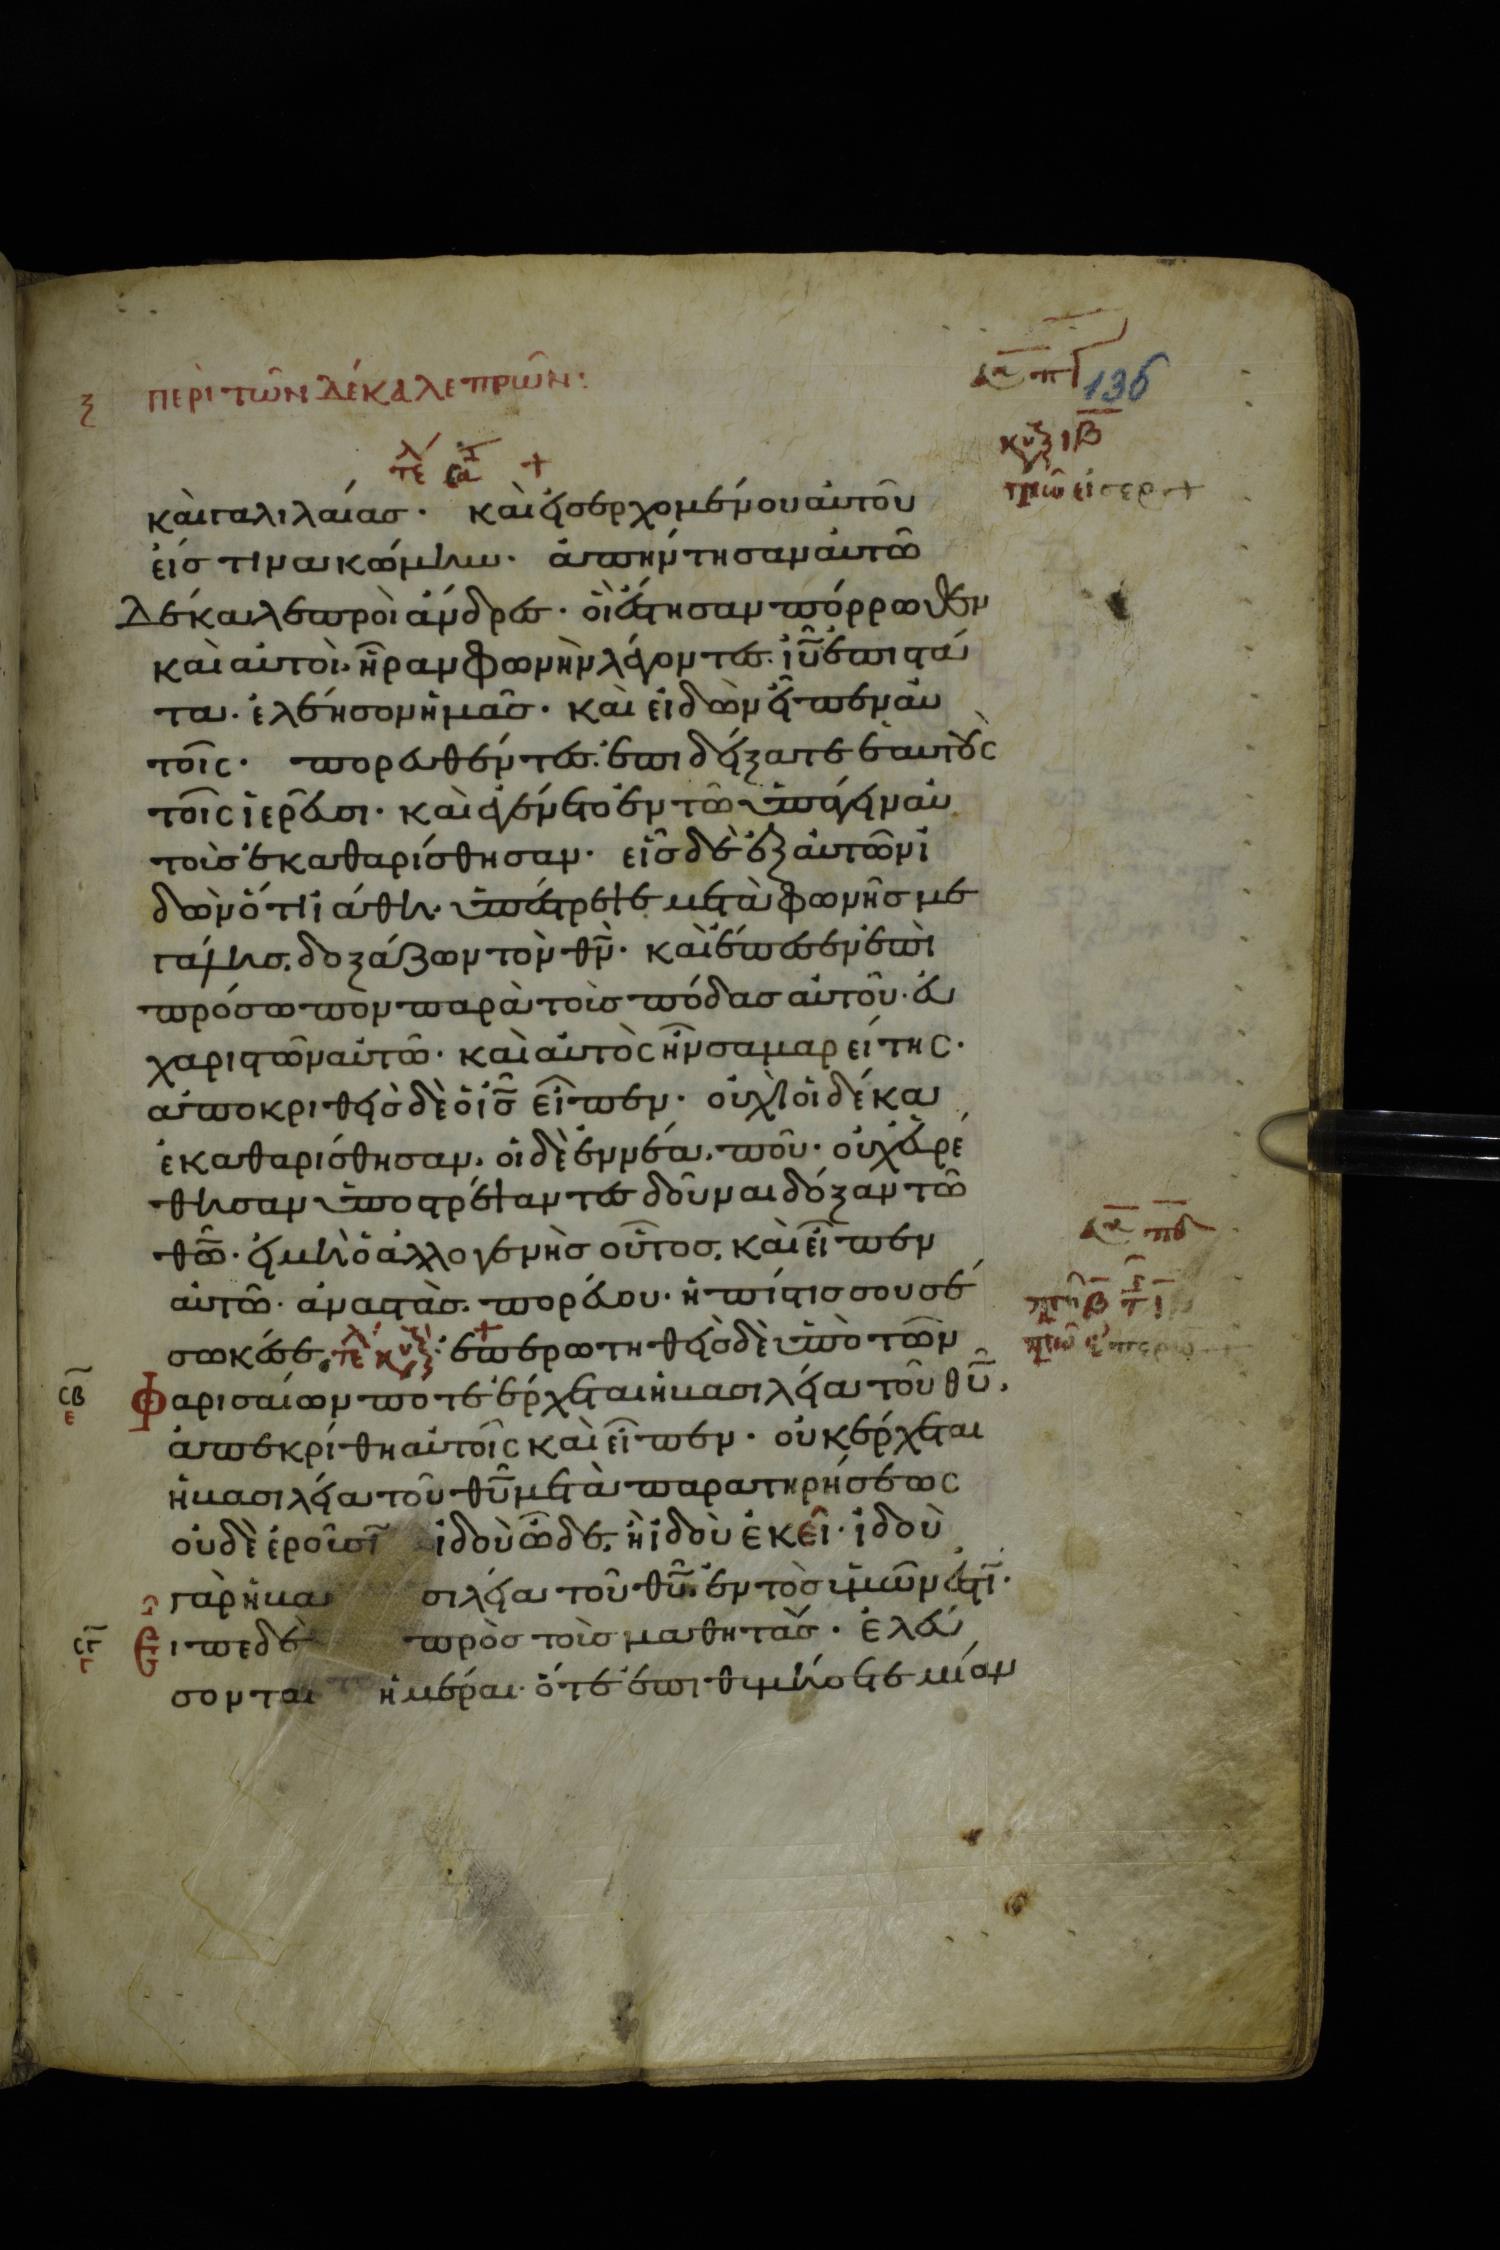 ξ περὶ τῶν δέκα λεπρῶν:
136
καὶ γαλιλαίας· καὶ εἰσερχομένου αὐτοῦ
εἴς τινα κώμην· ἀπήντησαν αὐτῶ
δέκα λεπροὶ ἄνδρες· οἳ ἔστησαν πόρρωθεν
καὶ αὐτοὶ ἦραν φωνὴν λέγοντες· ἰῦ ἐπιστά
τα· ἐλέησον ἡμᾶς· καὶ εἰδὼν εἶπεν αὐ
τοῖς· πορευθέντες· ἐπιδείξατε ἑαυτοὺς
τοῖς ἱερεῦσι· καὶ ἐγένετο ἐν τῶ ὑπάγειν αὐ
τοὺς ἐκαθαρίσθησαν· εἷς δὲ ἐξ αὐτῶν ἰ
δὼν ὅτι ἰάθη· ὑπέστρεψε μετὰ φωνῆς με
γάλης, δοξάζων τὸν θν· καὶ ἔπεσεν ἐπὶ
πρόσωπον παρὰ τοὺς πόδας αὐτοῦ· εὐ
χαριστῶν αὐτῶ· καὶ αὐτὸς ἦν σαμαρείτης·
ἀποκριθεὶς δὲ ὁ ις εἶπεν· οὐχὶ οἱ δέκα
ἐκαθαρίσθησαν, οἱ δὲ ἐννέα, ποῦ· οὐχ εὑρέ
θησαν ὑποστρέψαντες δοῦναι δόξαν τῶ
θῶ· εἰ μὴ ὁ ἀλλογενὴς οὗτος, καὶ εἶπεν
αὐτῶ· ἀναστὰς πορεύου· ἡ πίστις σου σέ
σωκέ σε· ἐπερωτηθεὶς δὲ ὑπὸ τῶν
σβ ε φαρισαίων πότε ἔρχεται ἡ βασιλεία τοῦ θυ,
ἀπεκρίθη αὐτοῖς καὶ εἶπεν· οὐκ ἔρχεται
ἡ βασιλεία τοῦ θυ μετὰ παρατηρήσεως
οὐδὲ ἐροῦσι ἰδοὺ ὧδε, ἢ ἰδοὺ ἐκεῖ· ἰδοὺ
γὰρ ἡ βασιλεία τοῦ θυ ἐντὸς ὑμῶν ἐστι·
σγ εἶπε δὲ πρὸς τοὺς μαθητάς· ἐλεύ
σονται ἡμέραι· ὅτε ἐπιθυμήσετε μίαν